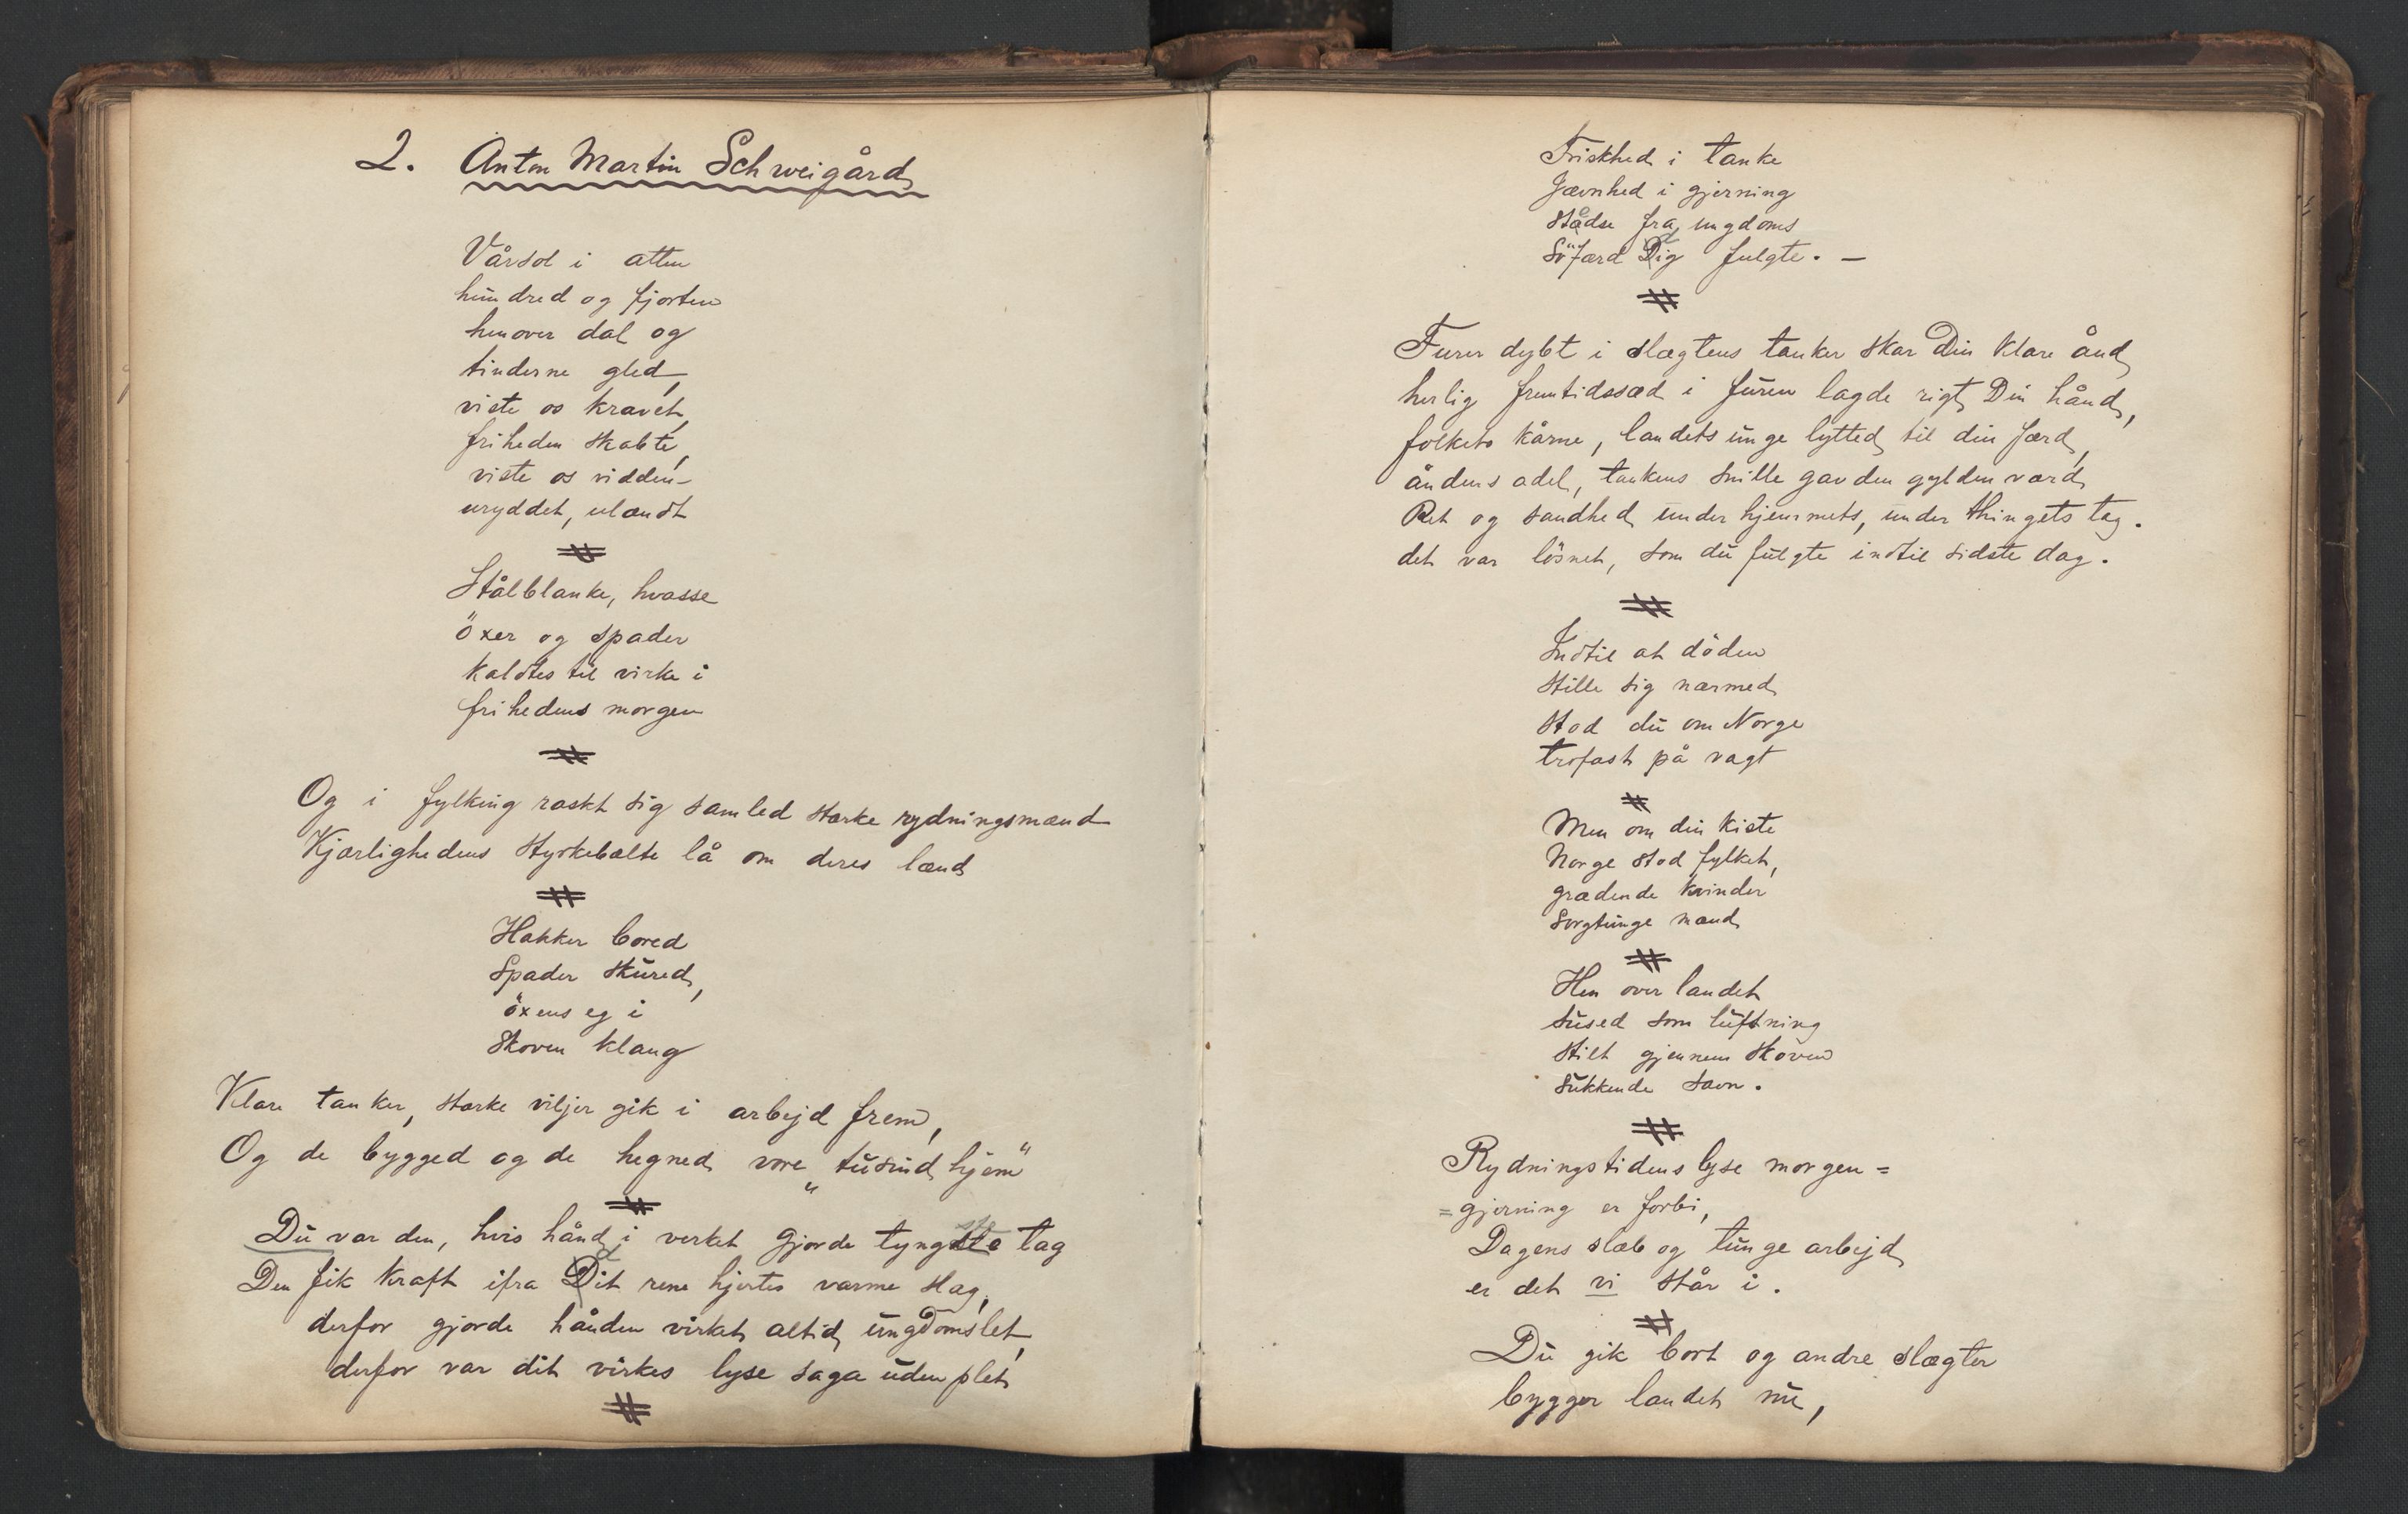 2. Anton Martin Schweigård
Vårsol i atten
hundred og fjorten
henover dal og
tinderne gled,
viste os kravet,
friheden skabte,
viste os vidden
uryddet, ulændt
#
Stålblanke, hvasse
öxer og spader
kaldtes til virke i
frihedens morgen
#
Og i fylking raskt sig samled stærke rydningsmænd
Kjærlighedens styrkebælte lå om deres lænd
#
Hakker bored
Spader skured,
öxens eg i
skoven klang
Klare tanker, stærke viljer gik i arbejd frem,
Og de bygged og de hegned vore „tusind hjem“
#
Du var den, hvis hånd i verket gjorde tyngste tag
Den fik kraft ifra Dit rene hjertes varme slag,
derfor gjorde hånden virket altid ungdomslet,
derfor var dit virkes lyse saga uden plet
#
Friskhed i tanke
Jævnhed i gjerning
stedse fra ungdoms
Söfærd Dig fulgte. —
#
Furer dybt i slægtens tanker skar Din klare ånd,
herlig fremtidssæd i furen lagde rigt Din hånd,
folkets kårne, landets unge lytted til din færd,
åndens adel, tankens snille gav den gylden værd,
Ret og sandhed under hjemmets, under thingets tag.
det var lösnet, som du fulgte indtil sidste dag.
#
Indtil at döden
stille sig nærmed
stod du om Norge
trofast på vagt
#
Men om din kiste
Norge stod fylket,
grædende kvinder
sorgtunge mænd
#
Hen over landet
sused som luftning
stilt gjennem skoven
sukkende savn.
#
Rydningstidens lyse morgen=
=gjerning er forbi,
Dagens slæb og tunge arbejd
er det vi står i.
#
Du gik bort og andre slægter
bygger landet nu,